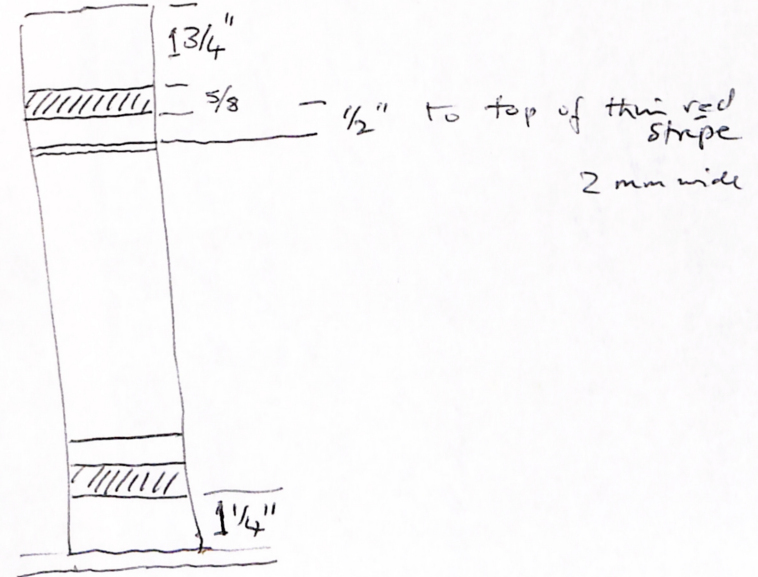 1 3/4"
5/8
1/2" to top of thin red
stripe
2 mm wide
1 1/4"